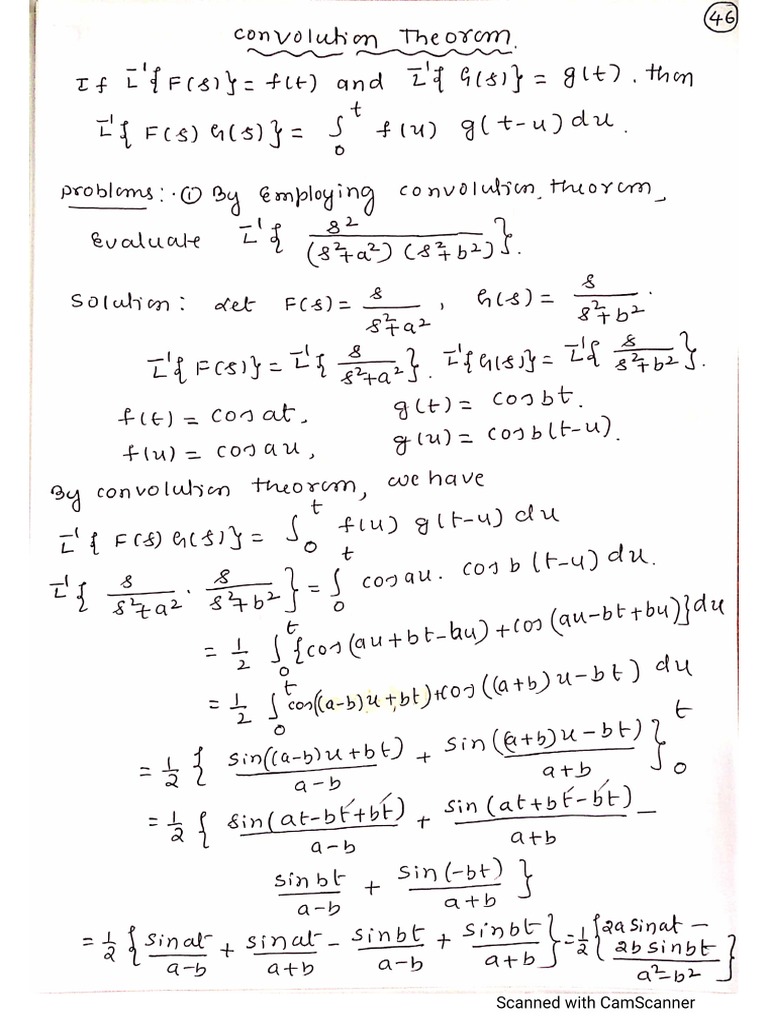 46
Convolution Theorem.
If L⁻¹{F(s)} = f(t) and L⁻¹{G(s)} = g(t). then
L⁻¹{F(s) G(s)} = ∫₀ᵗ f(u) g(t-u) du.
problems: · ① By Employing convolution theorem,
Evaluate L⁻¹{ s² / (s²+a²) (s²+b²) }.
Solution: Let F(s) = s / s²+a² , G(s) = s / s²+b² .
L⁻¹{F(s)} = L⁻¹{ s / s²+a² }. L⁻¹{G(s)} = L⁻¹{ s / s²+b² }.
f(t) = cosat, g(t) = cosbt.
f(u) = cosau, g(u) = cosb(t-u).
By convolution theorem, we have
L⁻¹{F(s) G(s)} = ∫₀ᵗ f(u) g(t-u) du
L⁻¹{ s / s²+a² · s / s²+b² } = ∫₀ᵗ cosau. cosb(t-u) du.
= 1/2 ∫₀ᵗ {cos(au+bt-bu) + cos(au-bt+bu)} du
= 1/2 ∫₀ᵗ cos((a-b)u+bt) + cos((a+b)u-bt) du
= 1/2 { sin((a-b)u+bt) / a-b + sin((a+b)u-bt) / a+b }₀ᵗ
= 1/2 { sin(at-bt+bt) / a-b + sin(at+bt-bt) / a+b -
sinbt / a-b + sin(-bt) / a+b }
= 1/2 { sinat / a-b + sinat / a+b - sinbt / a-b + sinbt / a+b } = 1/2 { 2a sinat - 2b sinbt / a²-b² }
Scanned with CamScanner